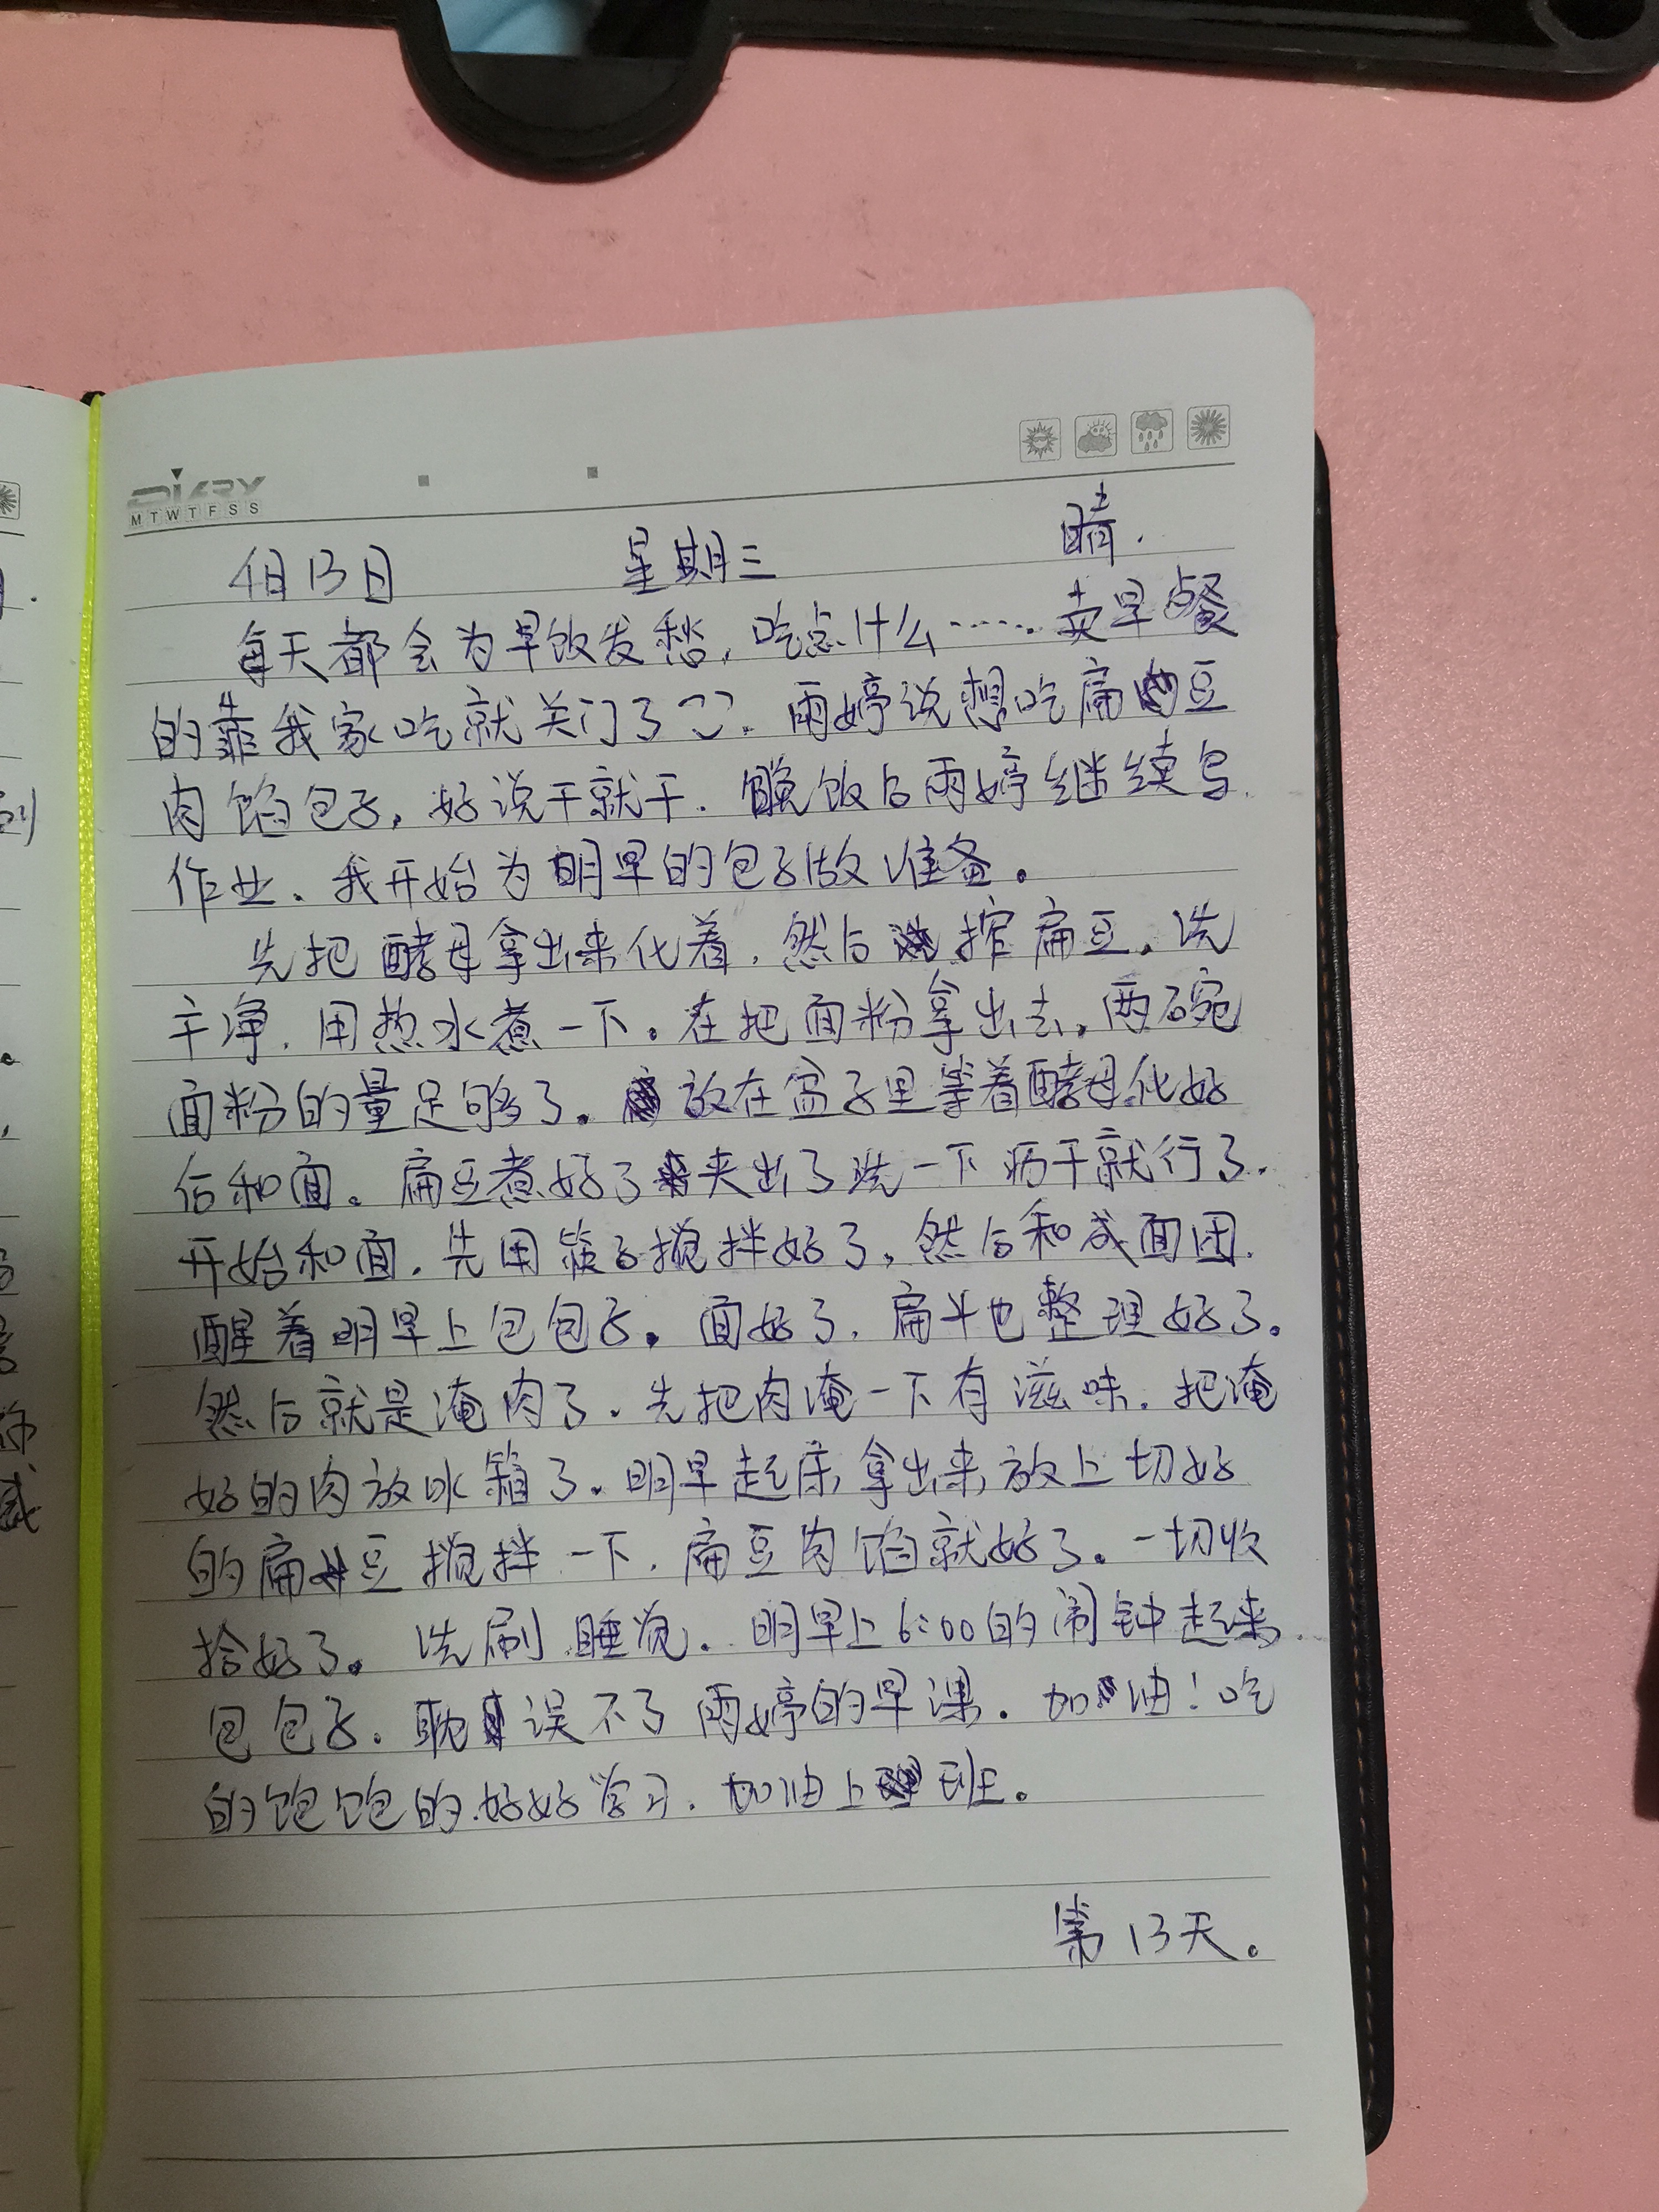 DIARY
M T W T F S S
4月13日 星期三 晴.
每天都会为早饭发愁,吃点什么……卖早餐
的靠我家吃就关门了.雨婷说想吃扁豆
肉馅包子,好说干就干.晚饭后雨婷继续写
作业.我开始为明早的包子做准备。
先把酵母拿出来化着,然后择扁豆.洗
干净.用热水煮一下。在把面粉拿出去,两碗
面粉的量足够了.放在盆子里等着酵母化好
后和面。扁豆煮好了夹出了洗一下沥干就行了.
开始和面.先用筷子搅拌好了,然后和成面团.
醒着明早上包包子.面好了,扁斗也整理好了.
然后就是淹肉了.先把肉淹一下有滋味.把淹
好的肉放冰箱了.明早起床拿出来放上切好
的扁豆搅拌一下.扁豆肉馅就好了.一切收
拾好了。洗刷睡觉.明早上6:00的闹钟起来
包包子.耽误不了雨婷的早课.加油!吃
的饱饱的.好好学习.加油上班。
第13天。
刷